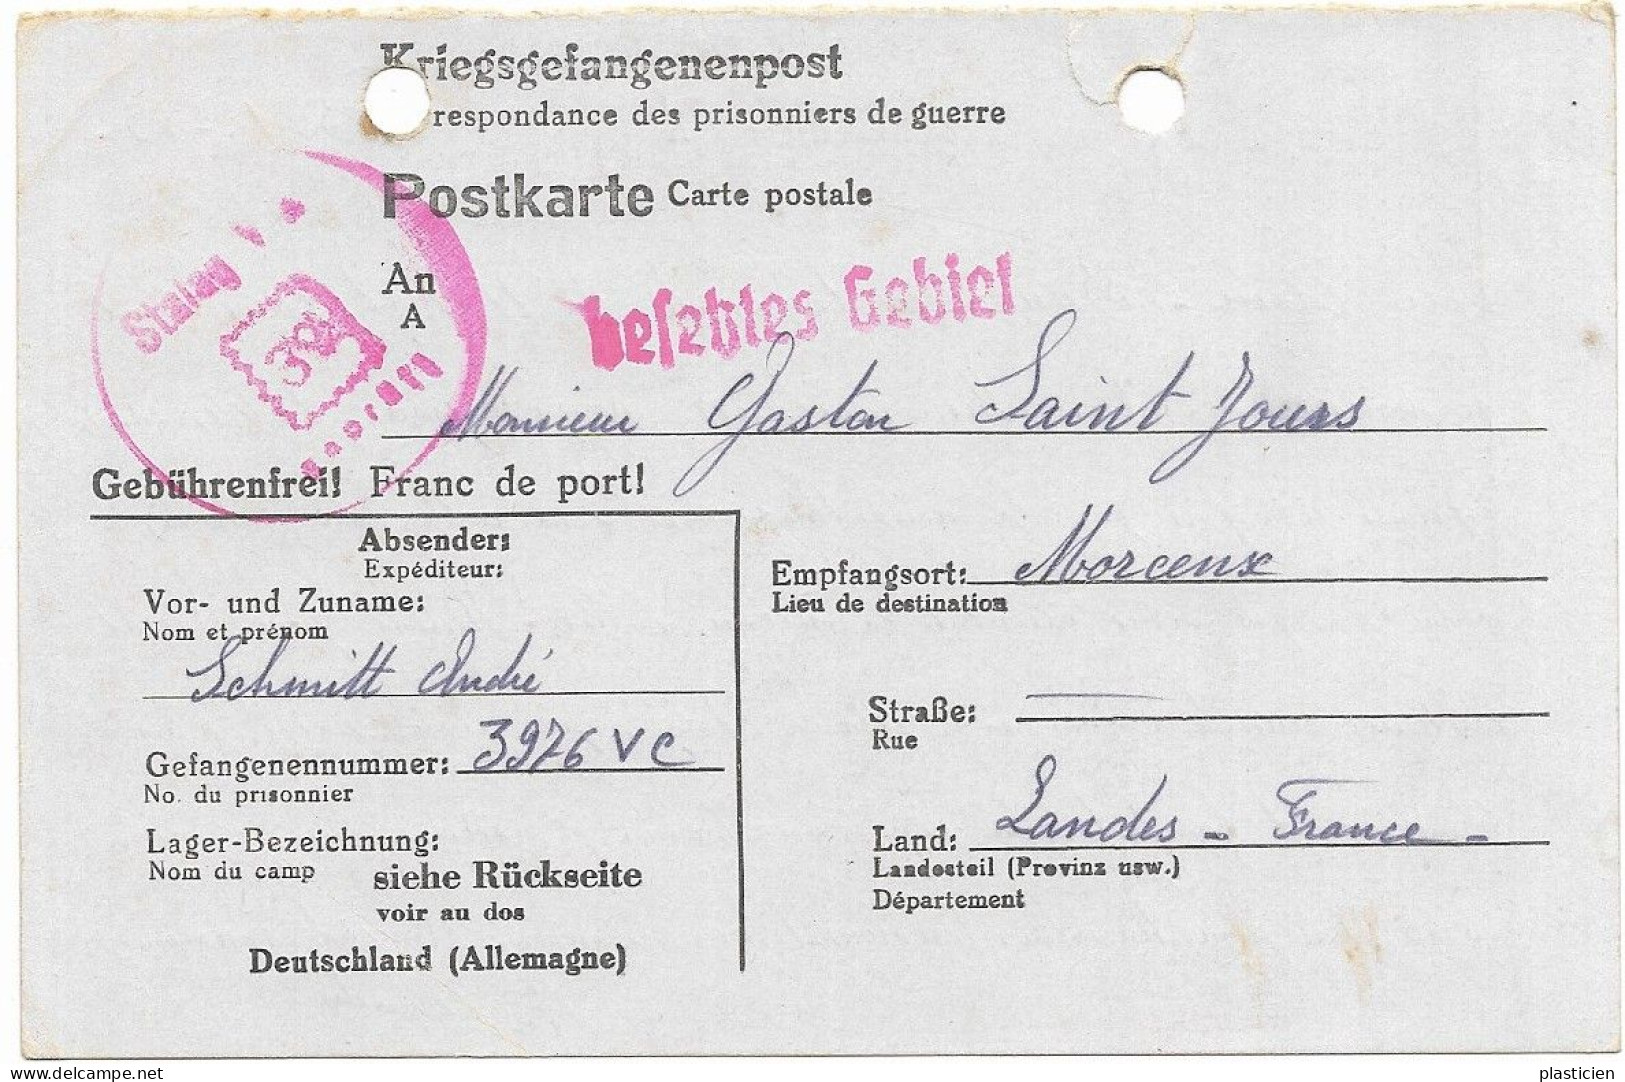 Kriegsgefangenenpost
respondance des prisonniers de guerre
Postkarte Carte postale
Stalag V
An
A
39
besetztes Gebiet
Monsieur Gaston Saint Jours
Gebührenfrei! Franc de port!
Absender:
Expéditeur:
Vor- und Zuname:
Nom et prénom
Schmitt André
Gefangenennummer: 3976 VC
No. du prisonnier
Lager-Bezeichnung:
Nom du camp
siehe Rückseite
voir au dos
Deutschland (Allemagne)
Empfangsort: Morcenx
Lieu de destination
Straße:
Rue
Land: Landes - France -
Landesteil (Provinz usw.)
Département
delcampe.net
plasticien